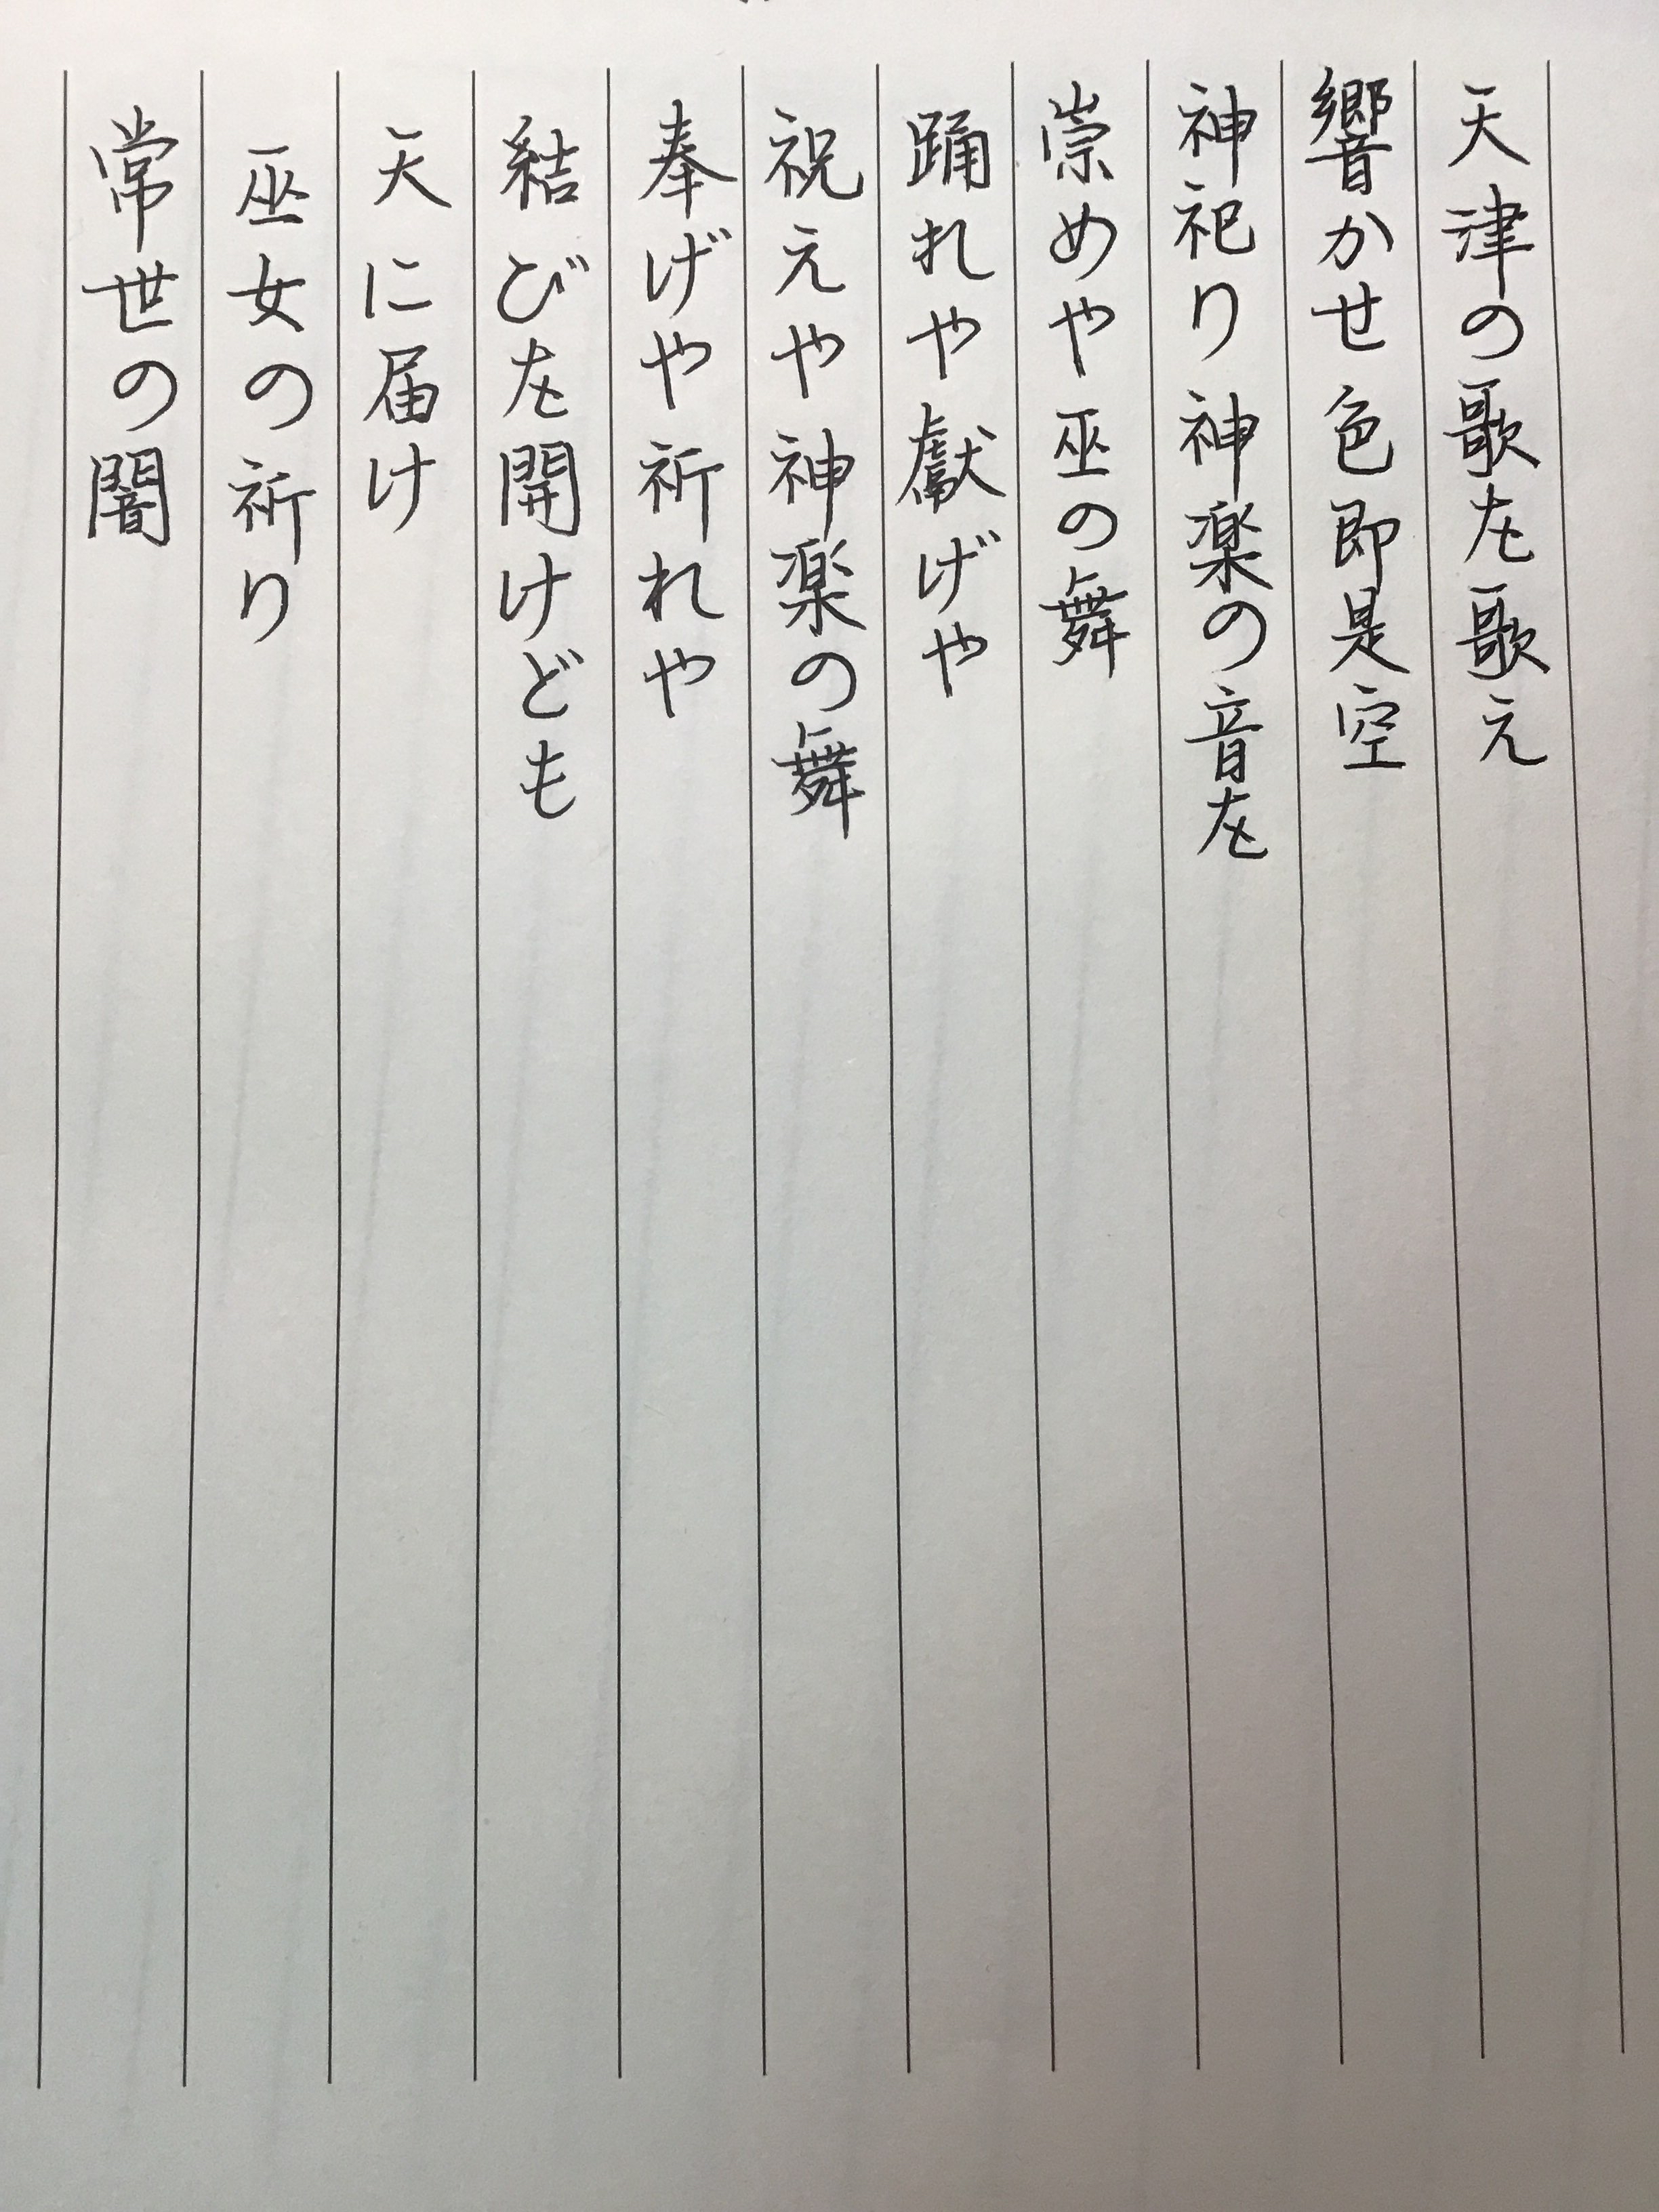 天津の歌を歌え
響かせ色即是空
神祀り神楽の音を
崇めや巫の舞
踊れや献げや
祝えや神楽の舞
奉げや祈れや
結びを開けども
天に届け
巫女の祈り
常世の闇